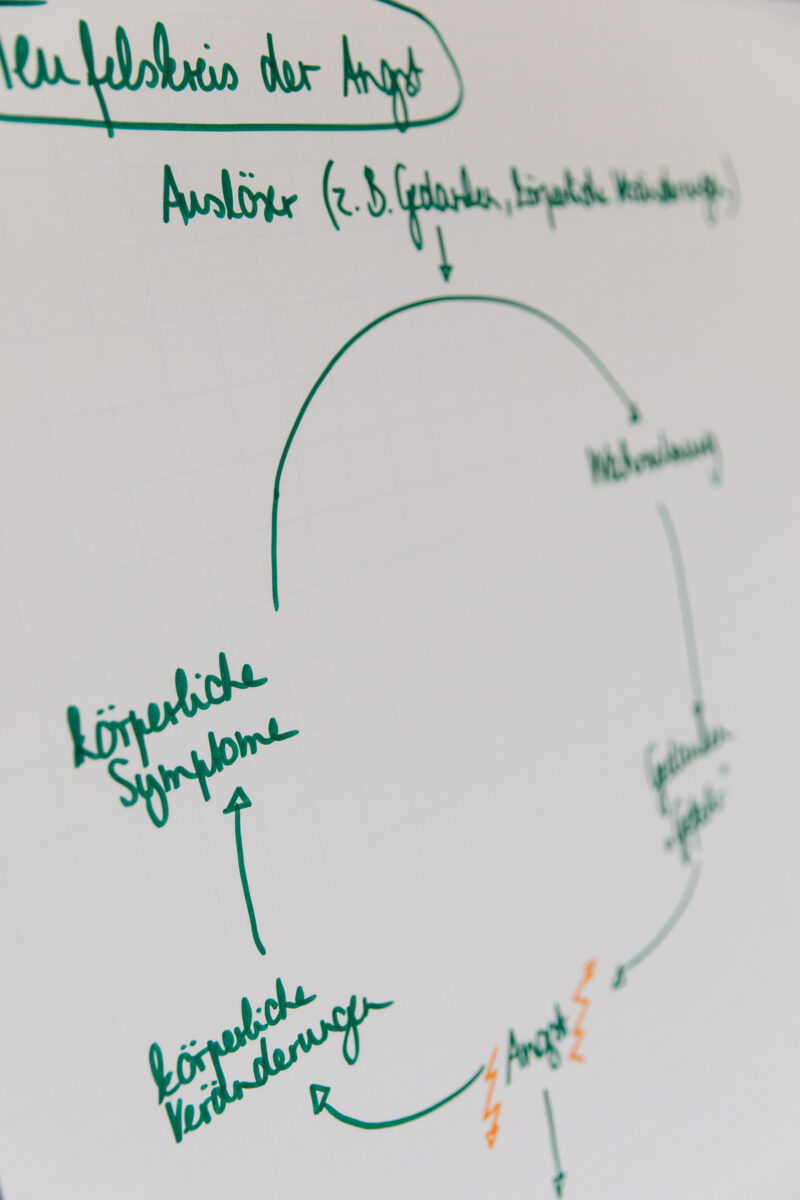 Teufelskreis der Angst
Auslöser (z.B. Gedanken, körperliche Veränderungen)
Wahrnehmung
Gedanken
körperliche
Symptome
Angst
körperliche
Veränderungen